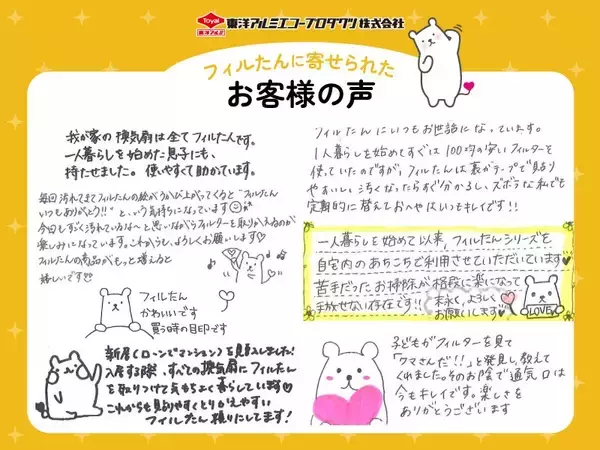 Toyal
東洋アルミ
東洋アルミエコープロダクツ株式会社
フィルたんに寄せられた
お客様の声
我が家の換気扇は全てフィルたんです。
一人暮らしを始めた息子にも、
持たせました。使いやすくて助かっています。
毎回汚れてきてフィルたんの絵がうかび上がってくると"フィルたん
いつもありがとう!!"という気持ちになっています
今日もすごく汚れているな〜と思いながらフィルターを取りかえるのが
楽しみになっています。これからも、よろしくお願いします♡
フィルたんの商品がもっと増えると
嬉しいです
フィルたん
かわいいです
買う時の目印です
新居(ローンでマンション)を購入しました!
入居する際、すべての換気扇にフィルたん
を取りつけて気もちよく暮らしています♡
これからも貼りやすくとりかえやすい
フィルたん頼りにしてます!
フィルたんにいつもお世話になっています。
1人暮らしを始めてすぐは100均の安いフィルターを
使っていたのですが、フィルたんは裏がテープで貼り
やすいし、汚くなったらすぐ分かるし、ズボラな私でも
定期的に替えておへやはいつもキレイです!!
一人暮らしを始めて以来、フィルたんシリーズを
自宅内のあちこちで利用させていただいています♥
苦手だったお掃除が格段に楽になって
手放せない存在です!!
末永く、よろしく
お願いします♥
LOVE
子どもがフィルターを見て
「クマさんだ!!」と発見し、教えて
くれました。そのお陰で通気口は
今もキレイです。楽しさを
ありがとうございます